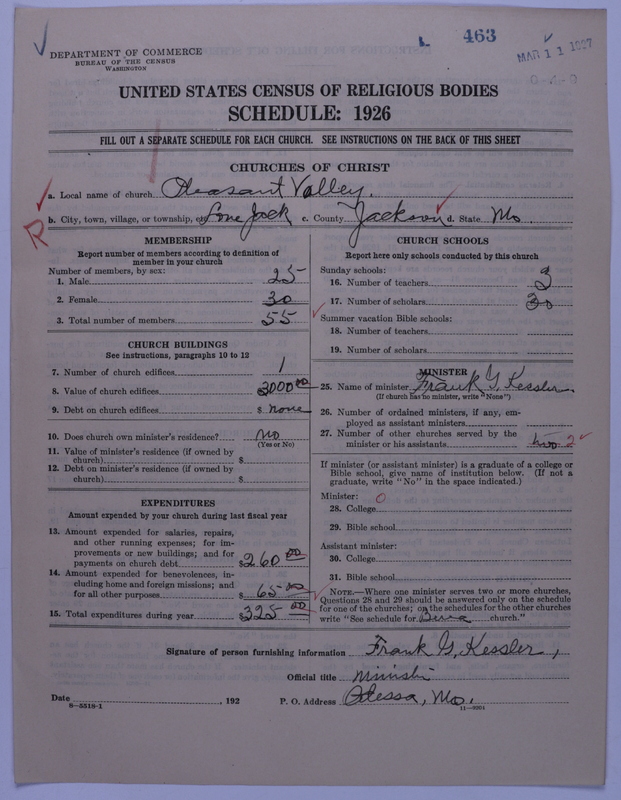 463
MAR 11 1927
DEPARTMENT OF COMMERCE
BUREAU OF THE CENSUS
WASHINGTON
UNITED STATES CENSUS OF RELIGIOUS BODIES
SCHEDULE: 1926
FILL OUT A SEPARATE SCHEDULE FOR EACH CHURCH. SEE INSTRUCTIONS ON THE BACK OF THIS SHEET
CHURCHES OF CHRIST
a. Local name of church Pleasant Valley.
b. City, town, village, or township, or Lone Jack c. County Jackson d. State Mo.
R
MEMBERSHIP
Report number of members according to definition of
member in your church
Number of members, by sex:
1. Male 25
2. Female 30
3. Total number of members 55
CHURCH BUILDINGS
See instructions, paragraphs 10 to 12
7. Number of church edifices 1
8. Value of church edifices 3000 00
9. Debt on church edifices $ none
10. Does church own minister's residence? No
(Yes or No)
11. Value of minister's residence (if owned by
church) $
12. Debt on minister's residence (if owned by
church) $
EXPENDITURES
Amount expended by your church during last fiscal year
13. Amount expended for salaries, repairs,
and other running expenses; for im-
provements or new buildings; and for
payments on church debt $260 00
14. Amount expended for benevolences, in-
cluding home and foreign missions; and
for all other purposes $ 65 00
15. Total expenditures during year $325 00
CHURCH SCHOOLS
Report here only schools conducted by this church
Sunday schools:
16. Number of teachers 3
17. Number of scholars 30
Summer vacation Bible schools:
18. Number of teachers
19. Number of scholars
MINISTER
25. Name of minister Frank G. Kessler
(If church has no minister, write "None")
26. Number of ordained ministers, if any, em-
ployed as assistant ministers
27. Number of other churches served by the
minister or his assistants two 2
If minister (or assistant minister) is a graduate of a college or
Bible school, give name of institution below. (If not a
graduate, write "No" in the space indicated.)
Minister: 0
28. College
29. Bible school
Assistant minister:
30. College
31. Bible school
NOTE.—Where one minister serves two or more churches,
Questions 28 and 29 should be answered only on the schedule
for one of the churches; on the schedules for the other churches
write "See schedule for church."
Signature of person furnishing information Frank G. Kessler,
Official title Minister
Date , 192 P. O. Address Odessa, Mo.
8—5518-1